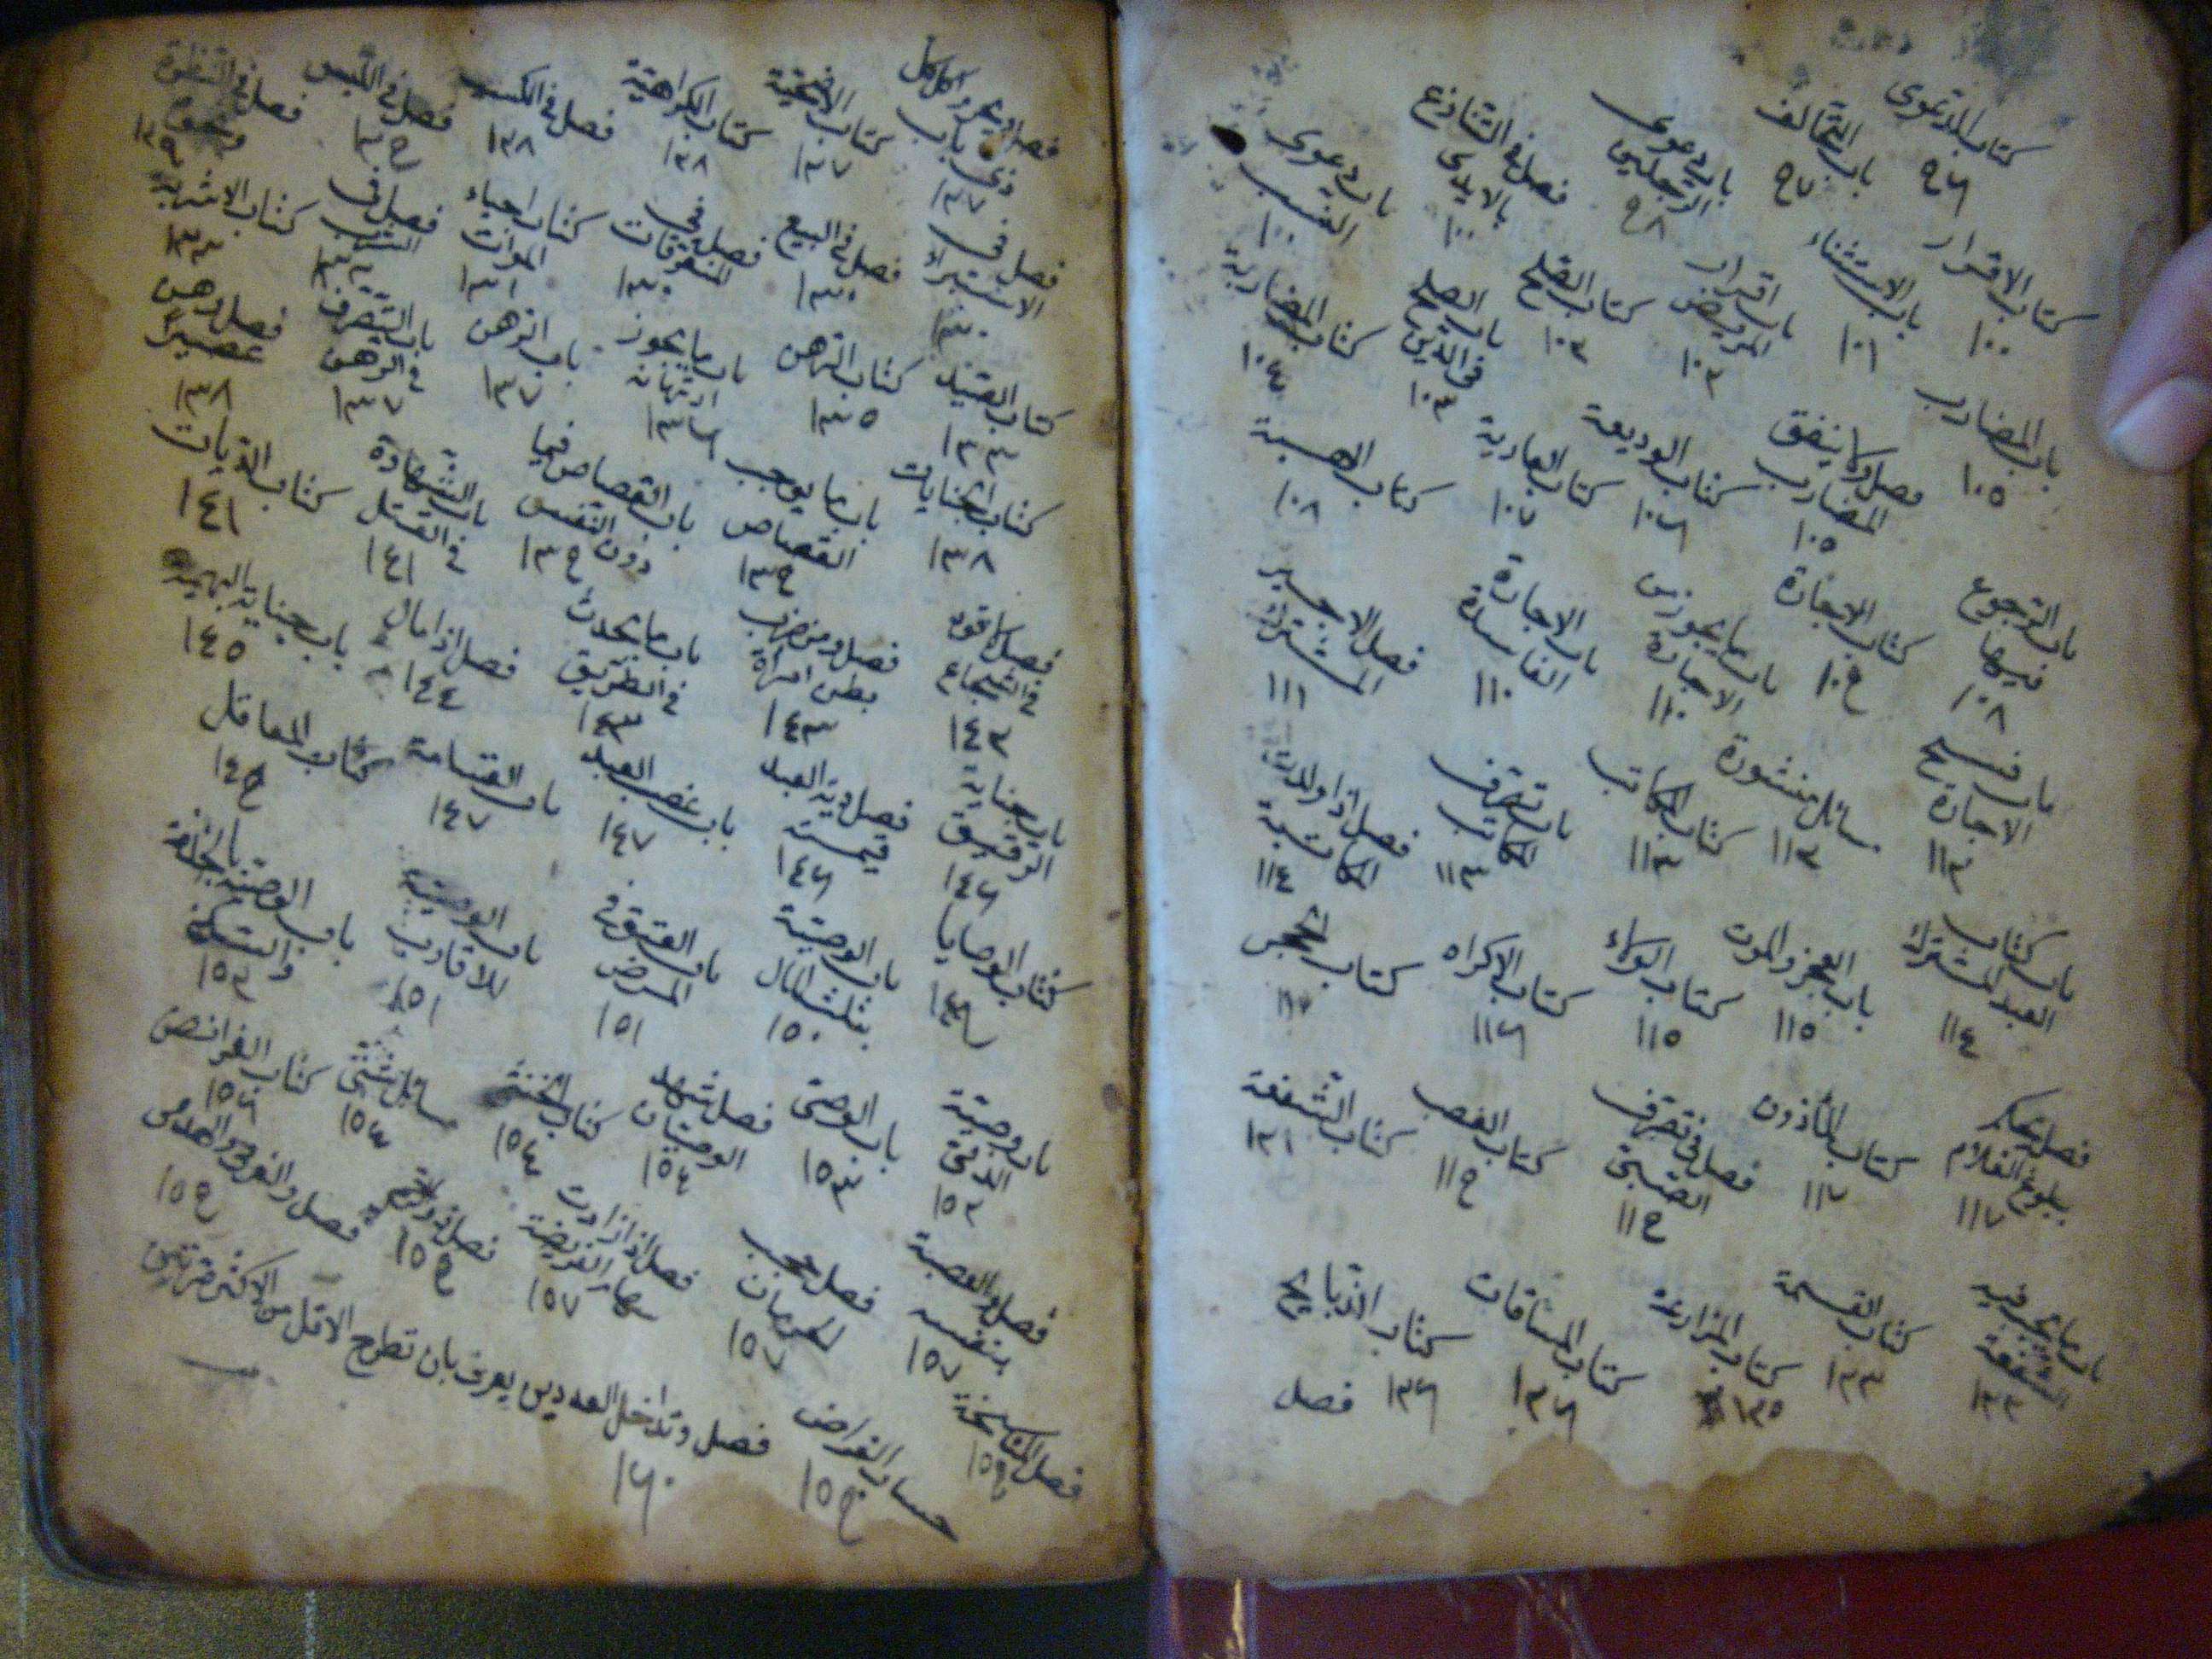 كتاب الدعوى ٩٦ باب التحالف ٩٧ باب دعوى الرجلين ٩٨ فصل في التنازع بالايدي ١٠٠ باب دعوى النسب ١٠٠
كتاب الاقرار ١٠٠ باب الاستثناء ١٠١ باب اقرار المريض ١٠٢ كتاب الصلح ١٠٣ باب الصلح في الدين ١٠٣ كتاب المضاربة ١٠٤
باب المضارب ١٠٥ فصل وما ينفق المضارب ١٠٥ كتاب الوديعة ١٠٦ كتاب العارية ١٠٧ كتاب الهبة ١٠٨
باب الرجوع فيها ١٠٨ كتاب الاجارة ١٠٩ باب ما يجوز من الاجارة ١١٠ باب الاجارة الفاسدة ١١٠ فصل الاجير المشترك ١١١
باب فسخ الاجارة ١١٢ مسائل منثورة ١١٣ كتاب المكاتب ١١٣ باب تصرف المكاتب ١١٣ فصل اذا ولدت المكاتبة ١١٤
باب كتابة العبد المشترك ١١٤ باب العجز والموت ١١٥ كتاب الولاء ١١٥ كتاب الاكراه ١١٦ كتاب الحجر ١١٧
فصل يحكم ببلوغ الغلام ١١٧ كتاب المأذون ١١٧ فصل في تصرف الصبي ١١٩ كتاب الغصب ١١٩ كتاب الشفعة ١٢١
باب ما يجب فيه الشفعة ١٢٢ كتاب القسمة ١٢٣ كتاب المزارعة ١٢٥ كتاب المساقات ١٢٦ كتاب الذبايح ١٢٦ فصل
فصل ويحرم اكل كل ذي ناب ١٢٧ كتاب الاضحية ١٢٧ كتاب الكراهية ١٢٨ فصل في الكسب ١٢٨ فصل في اللبس ١٢٩ فصل في النظر
فصل في الاستبراء ١٣٠ فصل في البيع ١٣٠ فصل في المتفرقات ١٣٠ كتاب احياء الموات ١٣١ فصل في الشرب كتاب الاشربة
كتاب الصيد ١٣٣ كتاب الرهن ١٣٥ باب ما يجوز ارتهانه ١٣٦ باب الرهن ١٣٧ باب التصرف في الرهن ١٣٧ فصل رهن عصيرا ١٣٨
كتاب الجنايات ١٣٨ باب ما يوجب القصاص ١٣٩ باب القصاص فيما دون النفس ١٣٩ باب الشهادة في القتل ١٤١ كتاب الديات ١٤١
فصل لا قود في الشجاج ١٤٢ فصل ومن ضرب بطن امرأة ١٤٣ باب ما يحدث في الطريق ١٤٣ فصل اذا مال ١٤٤ باب جناية البهيمة ١٤٥
باب جناية الرقيق ١٤٦ فصل دية العبد قيمته ١٤٦ باب غصب العبد ١٤٧ باب القسامة ١٤٧ كتاب المعاقل ١٤٩
كتاب الوصايا ١٤٩ باب الوصية بثلث المال ١٥٠ باب العتق في المرض ١٥١ باب الوصية للاقارب ١٥١ باب الوصية بالخدمة والسكنى ١٥٢
باب وصية الذمي ١٥٢ باب الوصي ١٥٣ فصل شهد الوصيان ١٥٤ كتاب الخنثى ١٥٤ مسائل شتى ١٥٤ كتاب الفرائض ١٥٦
فصل والعصبة بنفسه ١٥٧ فصل حجب الحرمان ١٥٧ فصل اذا زادت سهام الفريضة ١٥٧ فصل ذو رحم ١٥٩ فصل والغرقى والهدمى ١٥٩
فصل المناسخة ١٥٩ حساب الفرائض ١٥٩ فصل وتداخل العددين يعرف بان تطرح الاقل من الاكثر مرتين ١٦٠